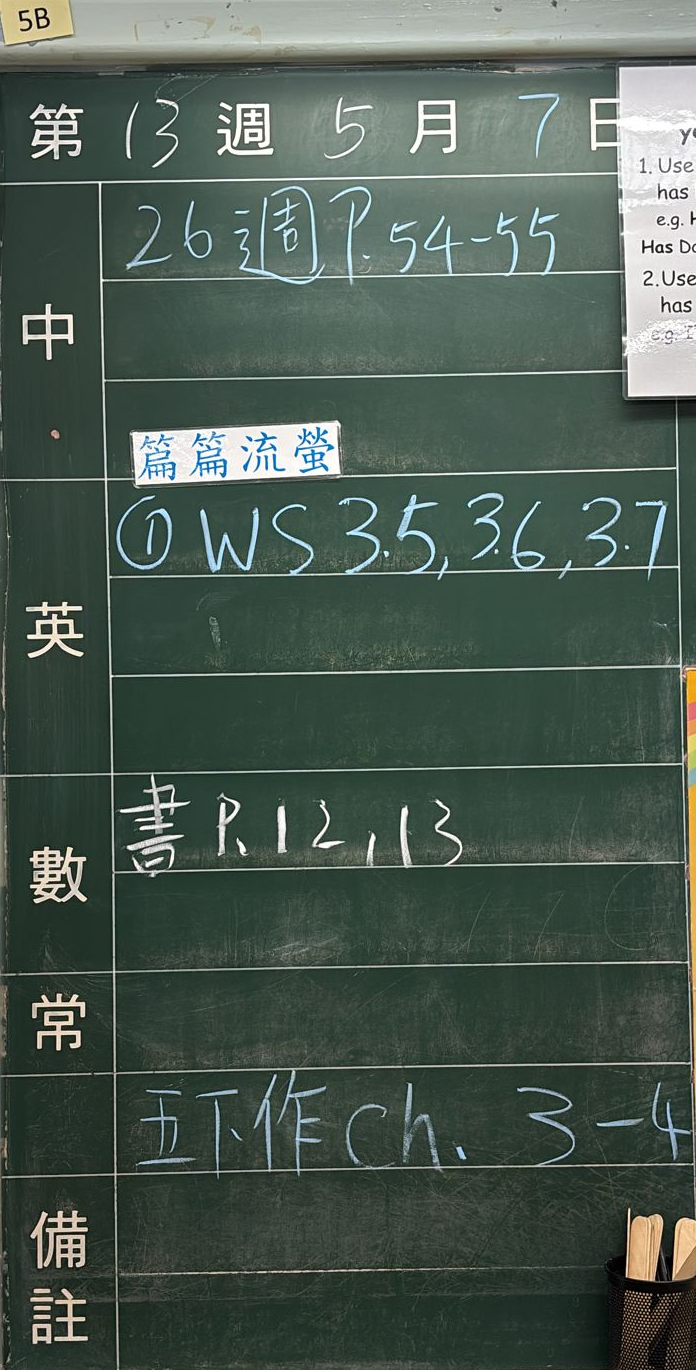 5B
第 13 週 5 月 7 日
中
26週P.54-55
篇篇流螢
英
① WS 3.5, 3.6, 3.7
數
書 P.12, 13
常
五下作 Ch. 3-4
備註
1. Use
has
e.g.
Has
2. Use
has
e.g. I